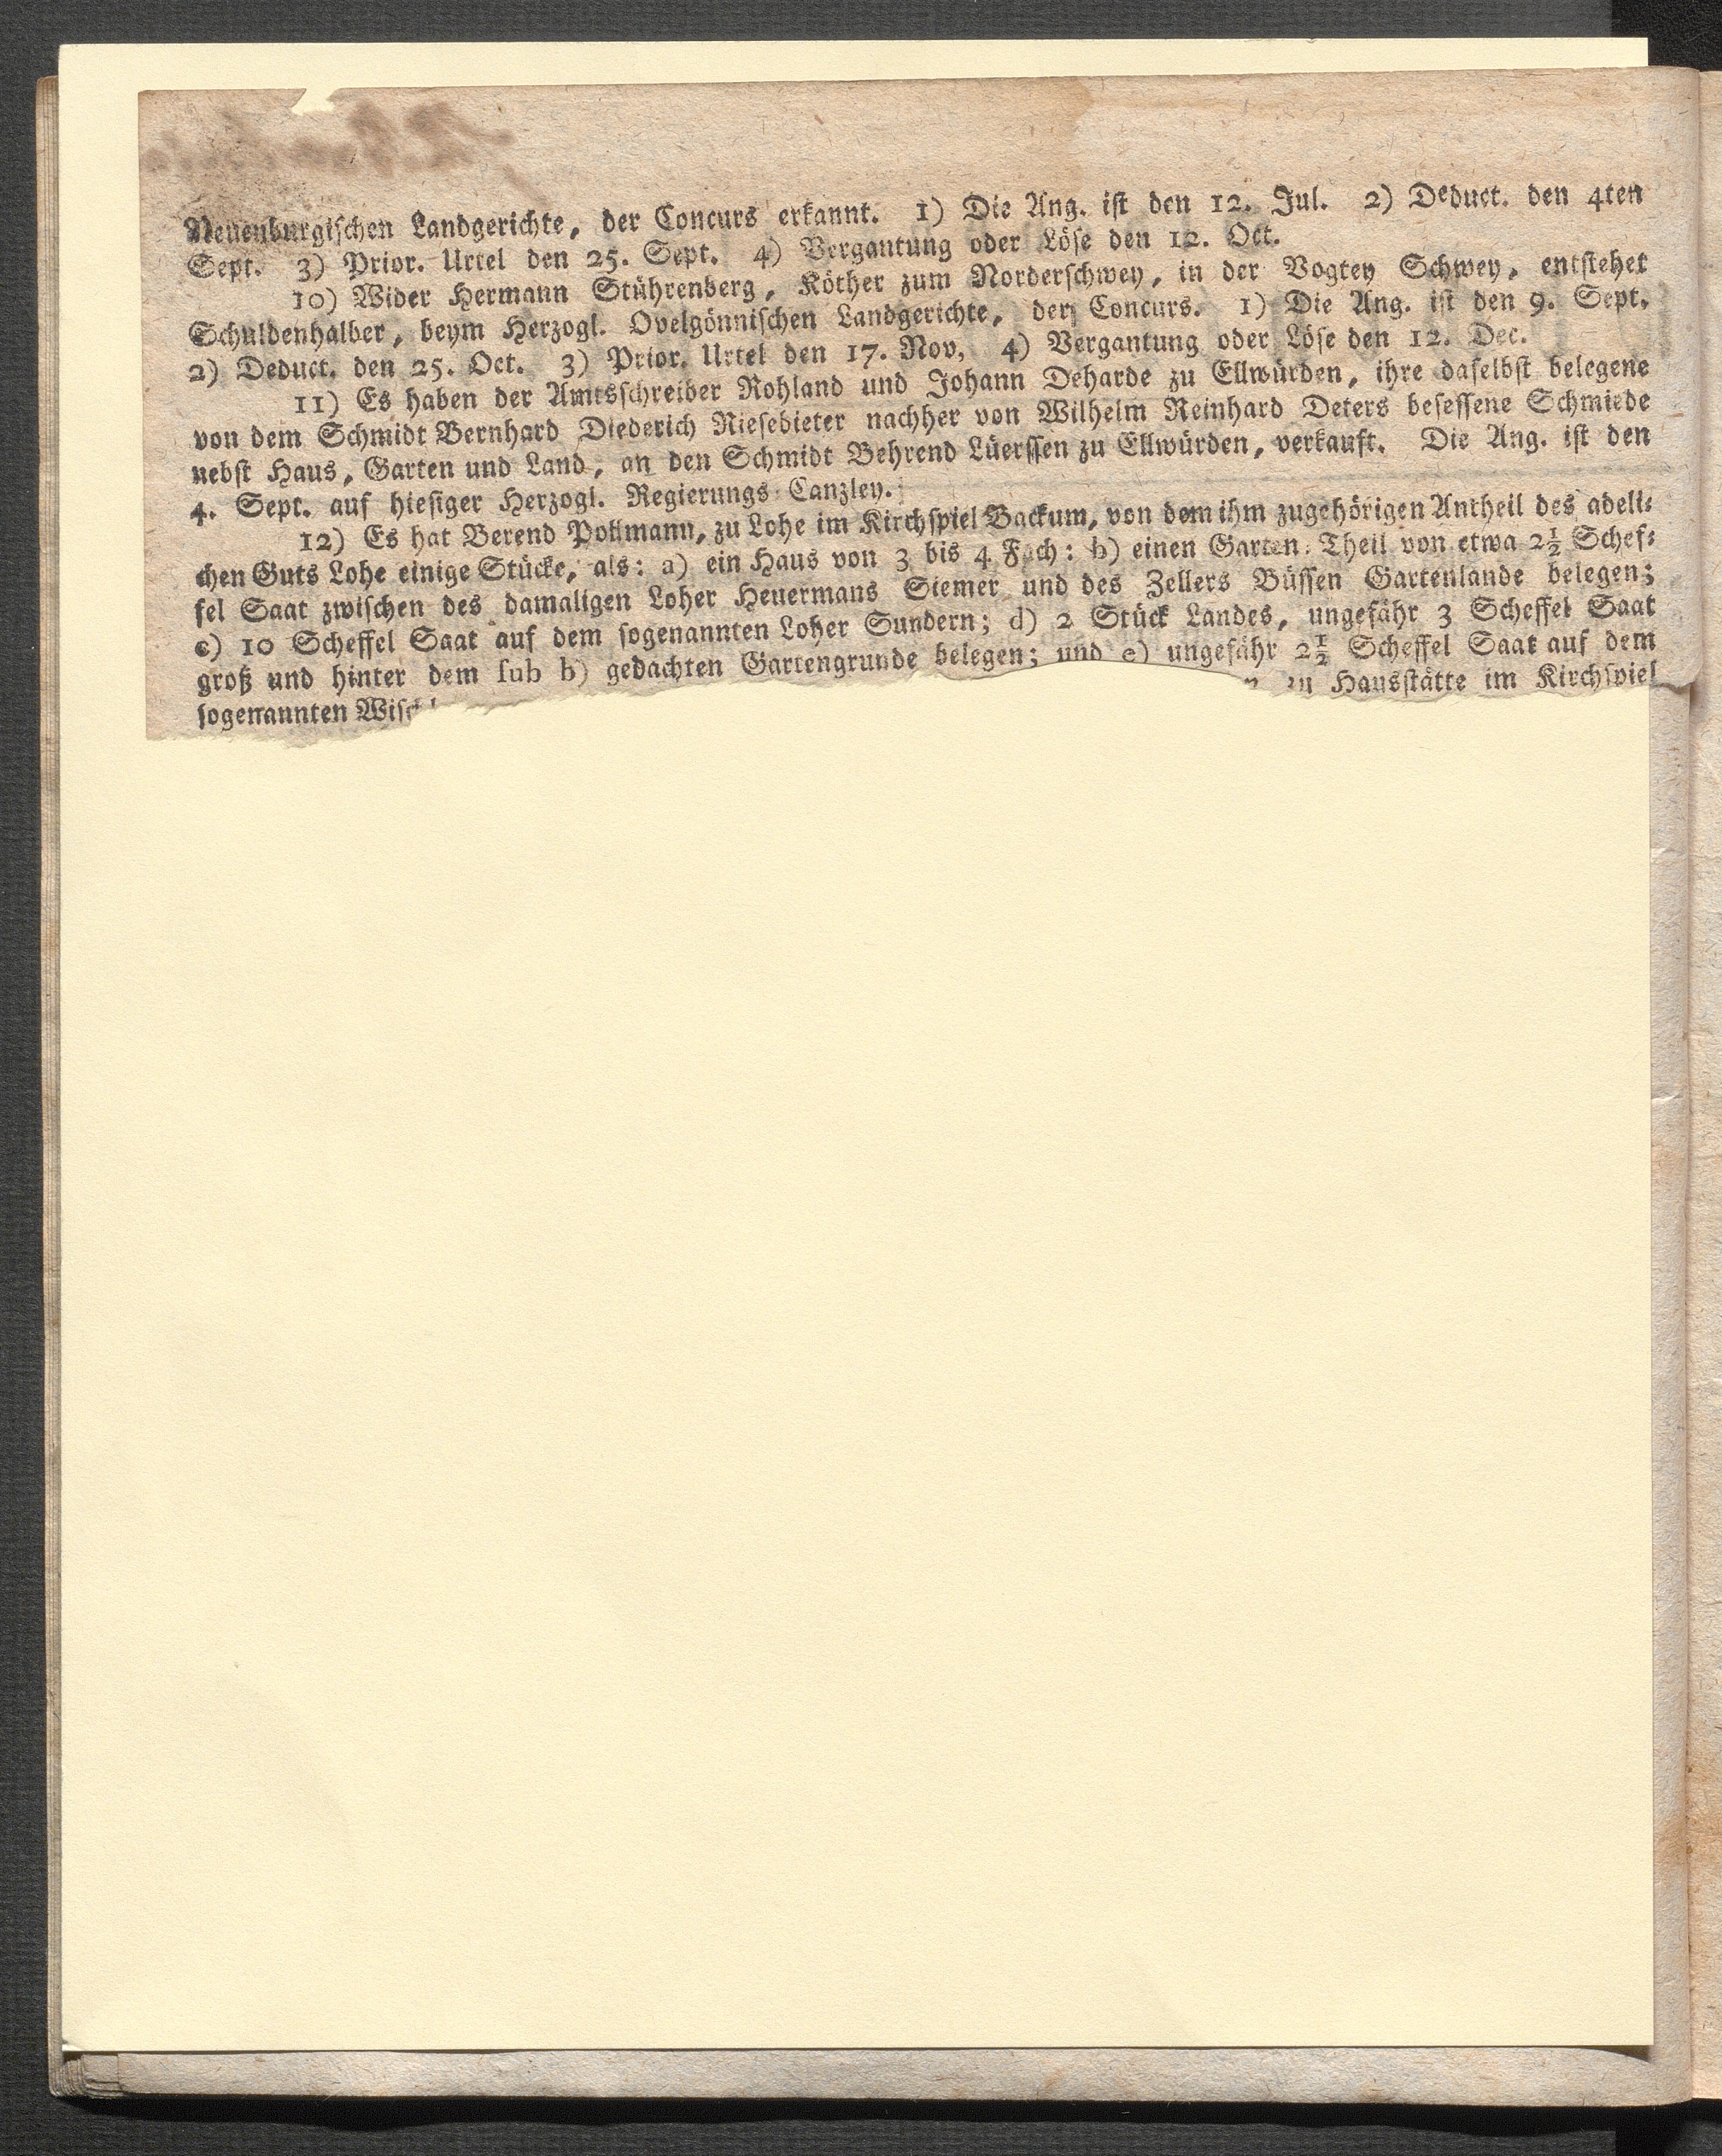 Neuenburgischen Landgerichte, der Concurs erkannt. 1) Die Ang. ist den 12. Jul. 2) Deduct. den 4ten
Sept. 3) Prior. Urtel den 25. Sept. 4) Vergantung oder Löse den 12. Oct.
10) Wider Hermann Stührenberg, Köther zum Norderschwey, in der Vogtey Schwey, entstehet
Schuldenhalber, beym Herzogl. Ovelgönnischen Landgerichte, der Concurs. 1) Die Ang. ist den 9. Sept.
2) Deduct. den 25. Oct. 3) Prior. Urtel den 17. Nov, 4) Vergantung oder Löse den 12. Dec.
11) Es haben der Amtsschreiber Rohland und Johann Deharde zu Ellwürden, ihre daselbst belegene
von dem Schmidt Bernhard Diederich Riesebieter nachher von Wilhelm Reinhard Deters besessene Schmiede
nebst Haus, Garten und Land, an den Schmidt Behrend Lüerssen zu Ellwürden, verkauft. Die Ang. ist den
4. Sept. auf hiesiger Herzogl. Regierungs-Canzley.
12) Es hat Berend Pollmann, zu Lohe im Kirchspiel Backum, von dem ihm zugehörigen Antheil des adeli-
chen Guts Lohe einige Stücke, als: a) ein Haus von 3 bis 4 Fach: b) einen Garten-Theil von etwa 2½ Schef-
fel Saat zwischen des damaligen Loher Heuermans Siemer und des Zellers Büssen Gartenlande belegen;
c) 10 Scheffel Saat auf dem sogenannten Loher Sundern; d) 2 Stück Landes, ungefähr 3 Scheffel Saat
groß und hinter dem sub b) gedachten Gartengrunde belegen; und e) ungefähr 2½ Scheffel Saat auf dem
sogenannten zu Hausstätte im Kirchspiel